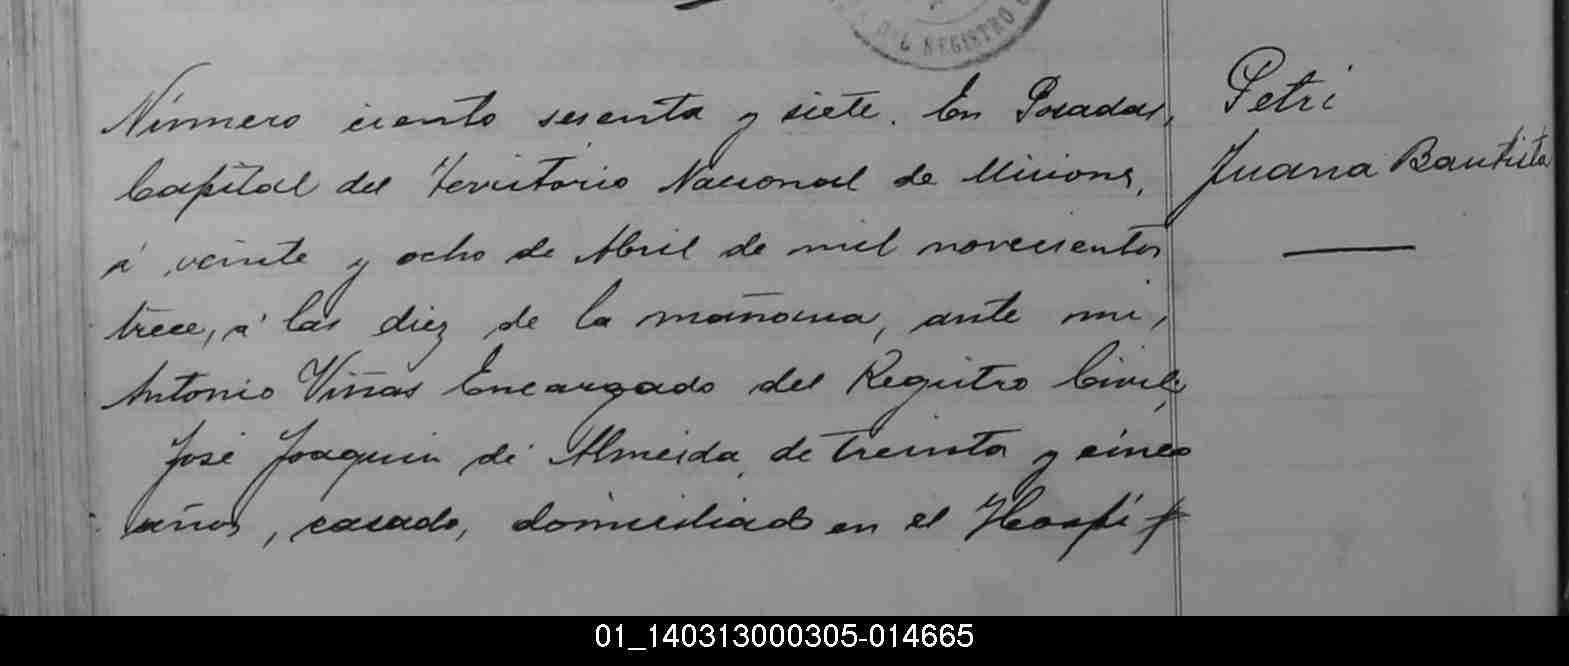 DEL REGISTRO
Número ciento sesenta y siete. En Posadas,
Capital del Territorio Nacional de Misiones,
á veinte y ocho de Abril de mil novecientos
trece, á las diez de la mañana, ante mi,
Antonio Viñas Encargado del Registro Civil,
José Joaquin de Almeida, de treinta y cinco
años, casado, domiciliado en el Hospi-
Petri
Juana Bautista
01_140313000305-014665